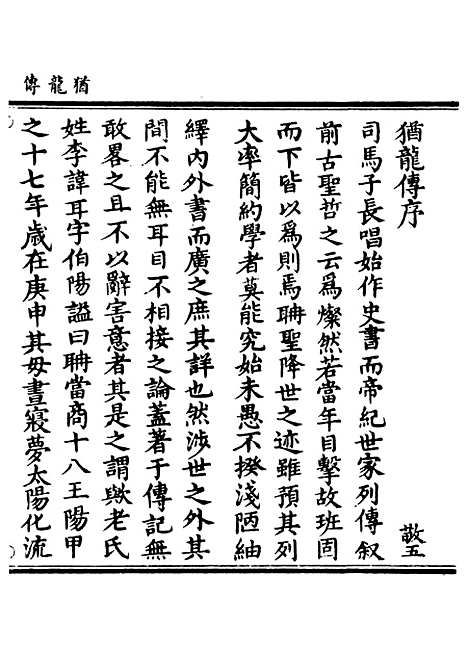 猶龍傳
猶龍傳序 敬五
司馬子長唱始作史書而帝紀世家列傳叙
前古聖哲之云為燦然若當年目擊故班固
而下皆以爲則焉聃聖降世之迹雖預其列
大率簡約學者莫能究始末愚不揆淺陋紬
繹内外書而廣之庶其詳也然涉世之外其
間不能無耳目不相接之論蓋著于傳記無
敢畧之且不以辭害意者其是之謂歟老氏
姓李諱耳字伯陽謚曰聃當商十八王陽甲
之十七年歲在庚申其母晝寢夢太陽化流